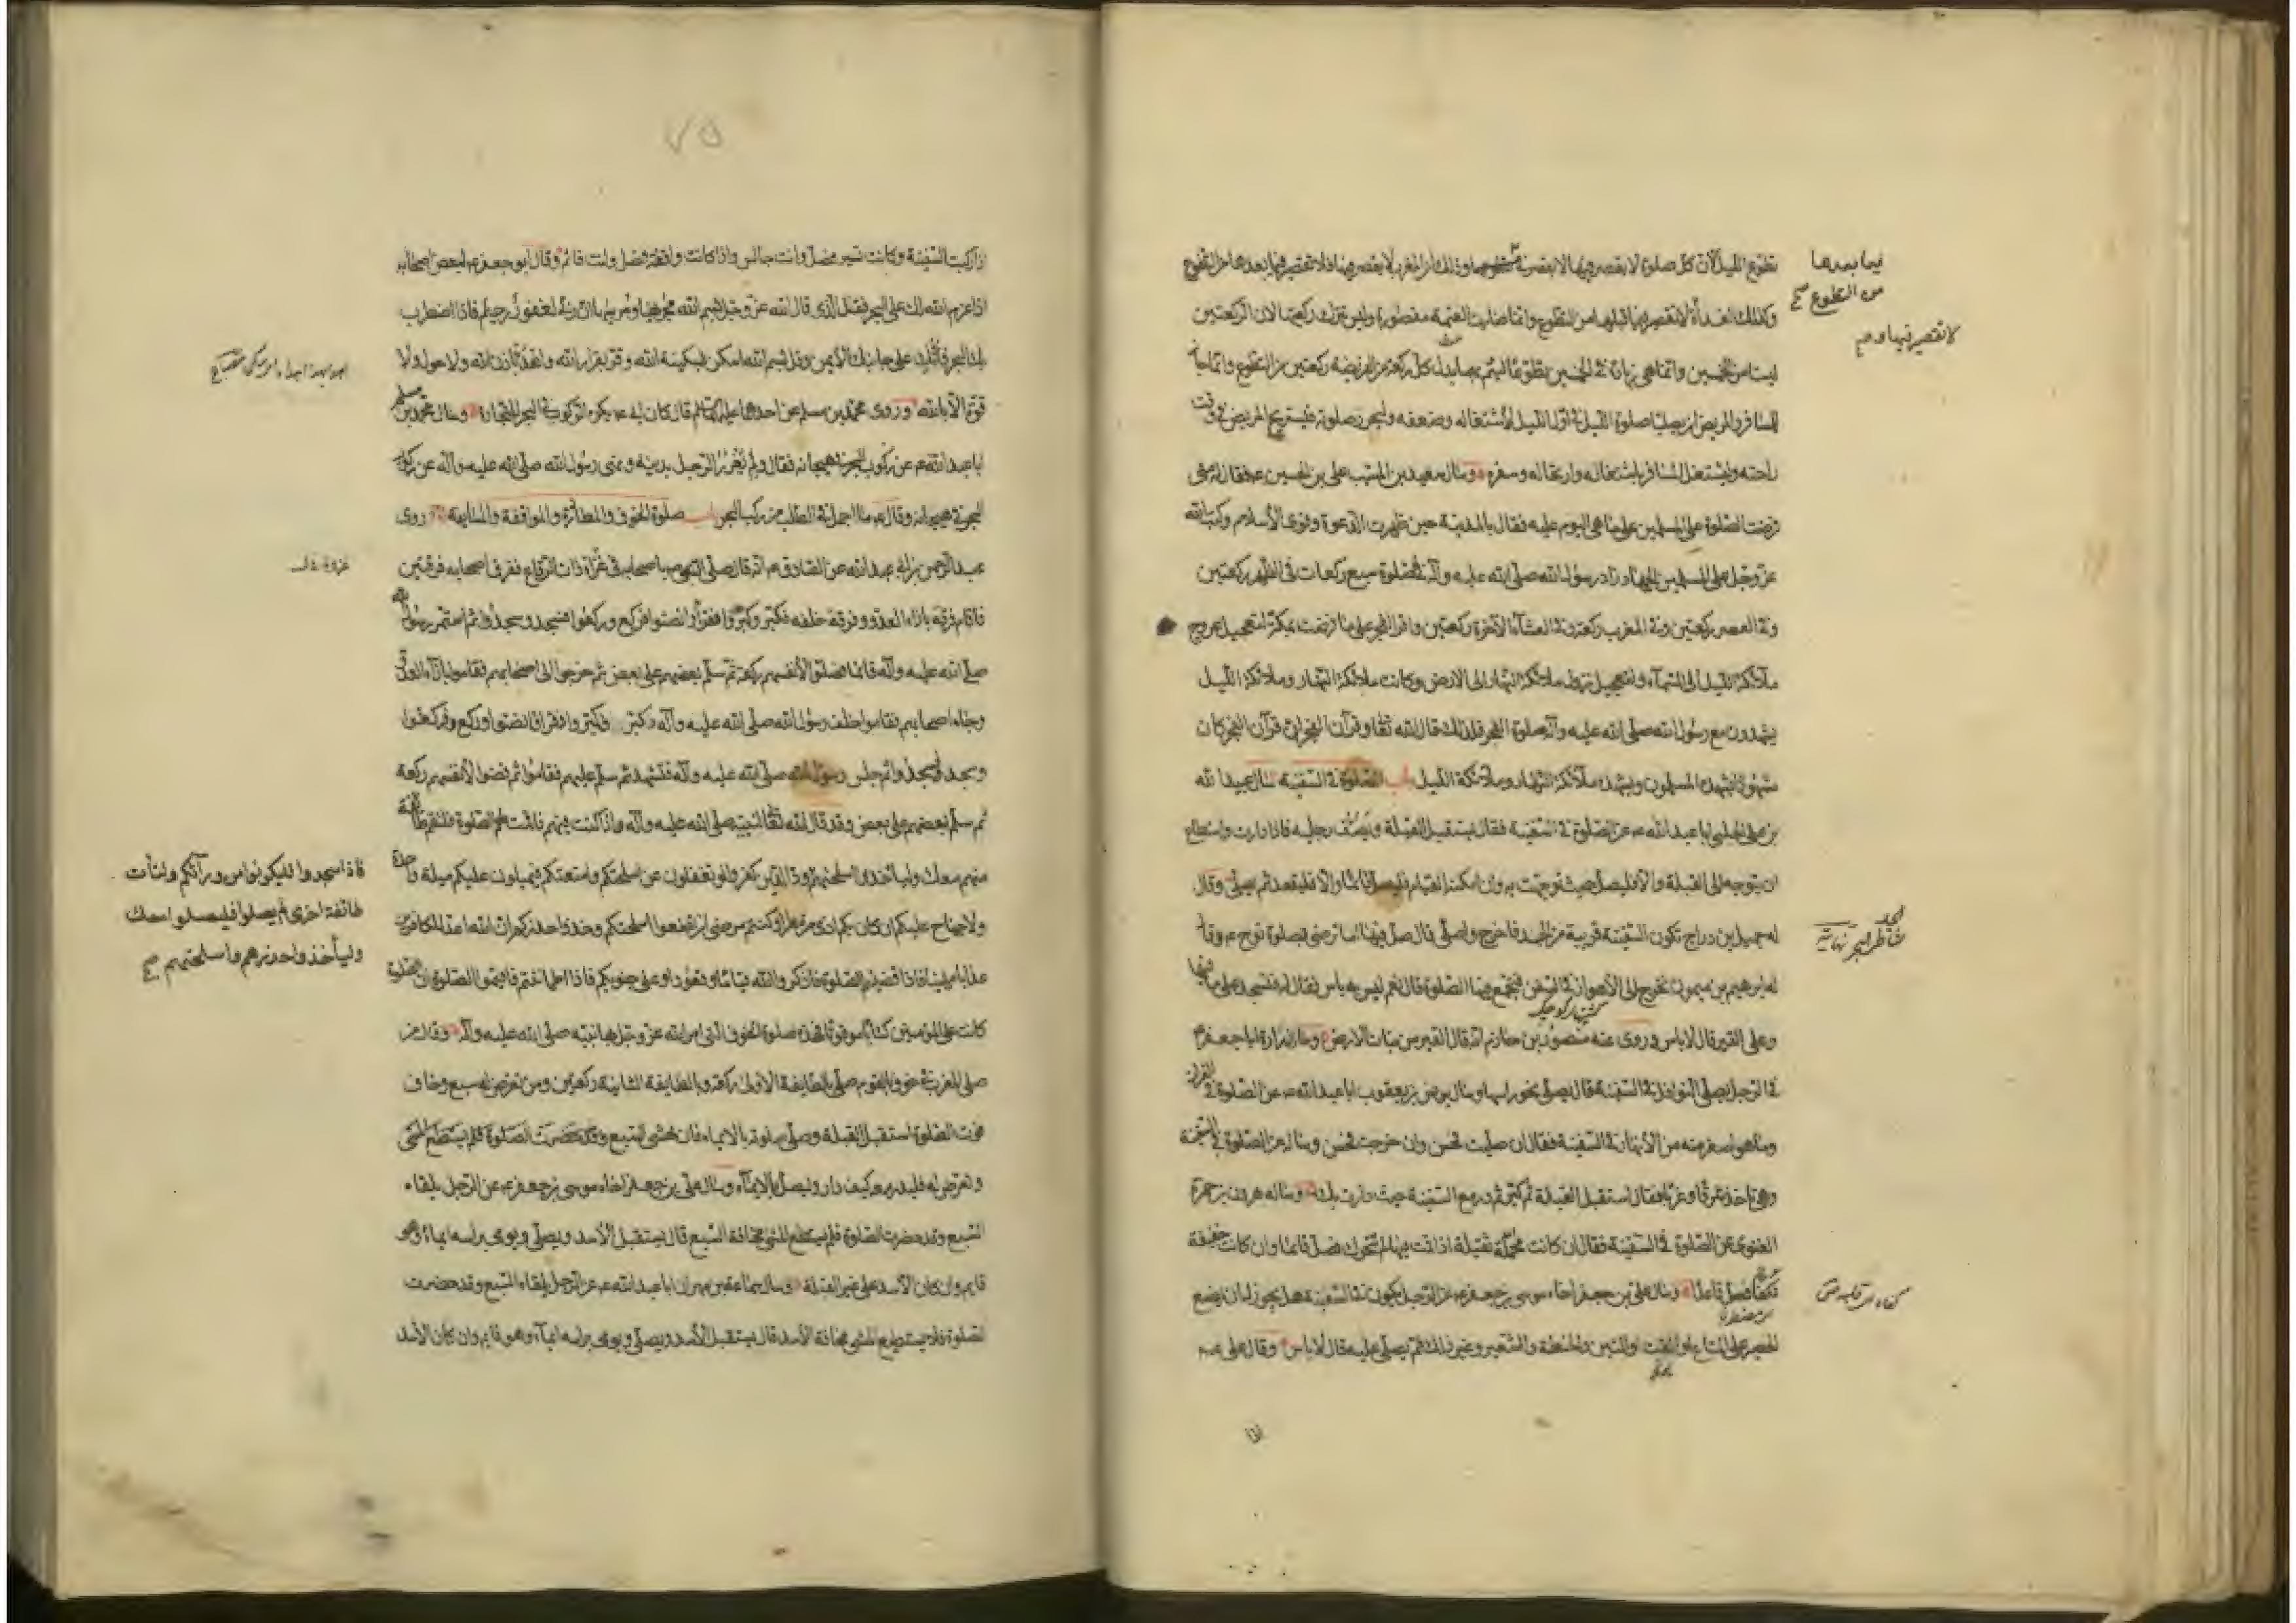 تطوع الليل لأن كل صلوة لا يقصر فيها لا يقصر فيما بعدها من التطوع
وكذلك الغداة لا تقصير فيها قبلها من التطوع وانما صارت العتمة مقصورة وليس تترك ركعتيها لان الركعتين
ليستا من الخمسين وانما هي زيادة في الخمسين تطوعا ليتم بهما بدل كل ركعة من الفريضة ركعتين من التطوع وانما جاز
للمسافر والمريض ان يصليا صلوة الليل في اول الليل لاشتغاله وضعفه وليحرز صلوته فيستريح المريض في وقت
راحته وليشتغل المسافر باشتغاله وارتحاله وسفره وسال سعيد بن المسيب علي بن الحسين ع فقال له متى
فرضت الصلوة على المسلمين على ما هي اليوم عليه فقال بالمدينة حين ظهرت الدعوة وقوى الاسلام وكتب الله
عز وجل على المسلمين الجهاد زاد رسول الله صلى الله عليه وآله في الصلوة سبع ركعات في الظهر ركعتين
وفي العصر ركعتين وفي المغرب ركعة وفي العشاء الآخرة ركعتين واقر الفجر على ما فرضت بمكة لتعجيل عروج
ملائكة الليل الى السماء ولتعجيل نزول ملائكة النهار الى الارض وكانت ملائكة النهار وملائكة الليل
يشهدون مع رسول الله صلى الله عليه وآله صلوة الفجر فلذلك قال الله تعالى وقرآن الفجر ان قرآن الفجر كان
مشهودا يشهده المسلمون ويشهده ملائكة النهار وملائكة الليل باب الصلوة في السفينة سال عبيد الله
بن علي الحلبي ابا عبد الله ع عن الصلوة في السفينة فقال يستقبل القبلة ويصف رجليه فاذا دارت واستطاع
ان يتوجه الى القبلة والا فليصل حيث توجهت به وان امكنه القيام فليصل قائما والا فليقعد ثم يصلي وقال
له جميل بن دراج تكون السفينة قريبة من الجد فاخرج واصلي قال صل فيها اما ترضى بصلوة نوح ع وقال
له ابرهيم بن ميمون نخرج الى الاهواز في السفن فنجمع فيها الصلوة قال نعم ليس به باس فقال له فنسجد على ما فيها
وعلى القير قال لا باس وروى عنه منصور بن حازم انه قال القير من نبات الارض وسال زرارة ابا جعفر ع
في الرجل يصلي النوافل في السفينة قال يصلي نحو راسها وسال يونس بن يعقوب ابا عبد الله ع عن الصلوة في الفرات
وما هو اصغر منه من الانهار في السفينة فقال ان صليت فحسن وان خرجت فحسن وساله عن الصلوة في السفينة
وهي تاخذ شرقا وغربا فقال استقبل القبلة ثم كبر ثم در مع السفينة حيث دارت بك وساله هرون بن حمزة
الغنوي عن الصلوة في السفينة فقال ان كانت محملة ثقيلة اذا قمت فيها لم تتحرك فصل قائما وان كانت خفيفة
تكفأ فصل قاعدا وسال علي بن جعفر اخاه موسى بن جعفر ع عن الرجل يكون في السفينة هل يجوز له ان يضع
الحصير على المتاع او القت او التبن والحنطة والشعير وغير ذلك ثم يصلي عليه قال لا باس وقال علي ع
فيما بعدها
من التطوع صح
لا تقصير فيها
اذا ركبت السفينة وكانت تسير فصل وانت جالس واذا كانت واقفة فصل وانت قائم وقال ابو جعفر ع لبعض اصحابه
اذا عزم الله لك على البحر فقل الذي قال الله عز وجل بسم الله مجريها ومرسيها ان ربي لغفور رحيم فاذا اضطرب
بك البحر فاتك على جانبك الايمن وقل بسم الله اسكن بسكينة الله وقر بقرار الله واهدأ باذن الله ولا حول ولا
قوة الا بالله وروى محمد بن مسلم عن احدهما عليهما السلم قال كان ابي ع يكره الركوب في البحر للتجارة وسال محمد بن مسلم
ابا عبد الله ع عن ركوب البحر في هيجانه فقال ولم يغرر الرجل بدينه ونهى رسول الله صلى الله عليه وآله عن ركوب
البحر في هيجانه وقال ع ما اجمل في الطلب من ركب البحر باب صلوة الخوف والمطاردة والمواقفة والمسايفة روى
عبد الرحمن بن ابي عبد الله عن الصادق ع انه قال صلى النبي ص باصحابه في غزاة ذات الرقاع ففرق اصحابه فرقتين
فاقام فرقة بازاء العدو وفرقة خلفه فكبر وكبروا فقرأ وانصتوا فركع وركعوا فسجد وسجدوا ثم استمر رسول الله
صلى الله عليه وآله قائما فصلوا لانفسهم ركعة ثم سلم بعضهم على بعض ثم خرجوا الى اصحابهم فقاموا بازاء العدو
وجاء اصحابهم فقاموا خلف رسول الله صلى الله عليه وآله فكبر وكبروا وقرأ فانصتوا وركع فركعوا
وسجد فسجدوا ثم جلس رسول الله صلى الله عليه وآله فتشهد ثم سلم عليهم فقاموا ثم قضوا لانفسهم ركعة
ثم سلم بعضهم على بعض وقد قال الله تعالى لنبيه صلى الله عليه وآله واذا كنت فيهم فاقمت لهم الصلوة فلتقم طائفة
منهم معك ولياخذوا اسلحتهم ود الذين كفروا لو تغفلون عن اسلحتكم وامتعتكم فيميلون عليكم ميلة واحدة
ولا جناح عليكم ان كان بكم اذى من مطر او كنتم مرضى ان تضعوا اسلحتكم وخذوا حذركم ان الله اعد للكافرين
عذابا مهينا فاذا قضيتم الصلوة فاذكروا الله قياما وقعودا وعلى جنوبكم فاذا اطمأننتم فاقيموا الصلوة ان الصلوة
كانت على المؤمنين كتابا موقوتا فهذه صلوة الخوف التي امر الله عز وجل بها نبيه صلى الله عليه وآله وقال من
صلى المغرب في خوف بالقوم صلى بالطايفة الاولى ركعة وبالطايفة الثانية ركعتين ومن تعرض له سبع وخاف
فوت الصلوة استقبل القبلة وصلى صلوته بالايماء فان خشي السبع وقد حضرت الصلوة فلم يستطع المشي
وتعرض له فليدر معه كيف دار وليصل بالايماء وسال علي بن جعفر اخاه موسى بن جعفر ع عن الرجل يلقاه
السبع وقد حضرت الصلوة فلم يستطع المشي مخافة السبع قال يستقبل الاسد ويصلي ويومي براسه ايماء وهو
قايم وان كان الاسد على غير القبلة وسال سماعة بن مهران ابا عبد الله ع عن الرجل يلقاه السبع وقد حضرت
الصلوة فلا يستطيع المشي مخافة الاسد قال يستقبل الاسد ويصلي ويومي براسه ايماء وهو قايم وان كان الاسد
فاذا سجدوا فليكونوا من ورائكم ولتأت
طائفة اخرى لم يصلوا فليصلوا معك
وليأخذوا حذرهم واسلحتهم صح